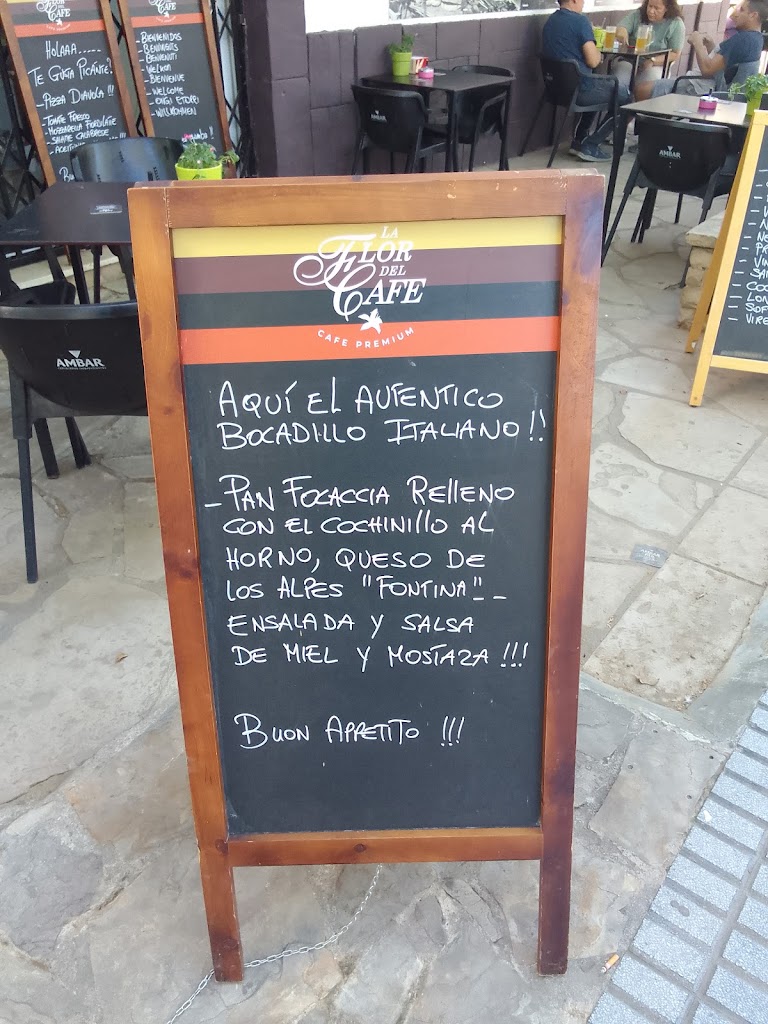 LA
FLOR
DEL
CAFE
CAFE PREMIUM
AQUÍ EL AUTENTICO
BOCADILLO ITALIANO!!
-PAN FOCACCIA RELLENO
CON EL COCHINILLO AL
HORNO, QUESO DE
LOS ALPES "FONTINA"_
ENSALADA Y SALSA
DE MIEL Y MOSTAZA!!!
BUON APPETITO !!!
FLOR DEL
CAFE
HOLAAA.....
TE GUSTA PICANTE?
-PIZZA DIAVOLA!!!
-TOMATE FRESCO
-MOZZARELLA FIORDILATTE
-SALAME CALABRESE
CAFE
-BIENVENIDOS
-BENVINGUTS
-BENVENUTI
-WELKOM
-BIENVENUE
-WELCOME
-ONGI ETORRI
-WILLKOMMEN
AMBAR
AMBAR
AMBAR